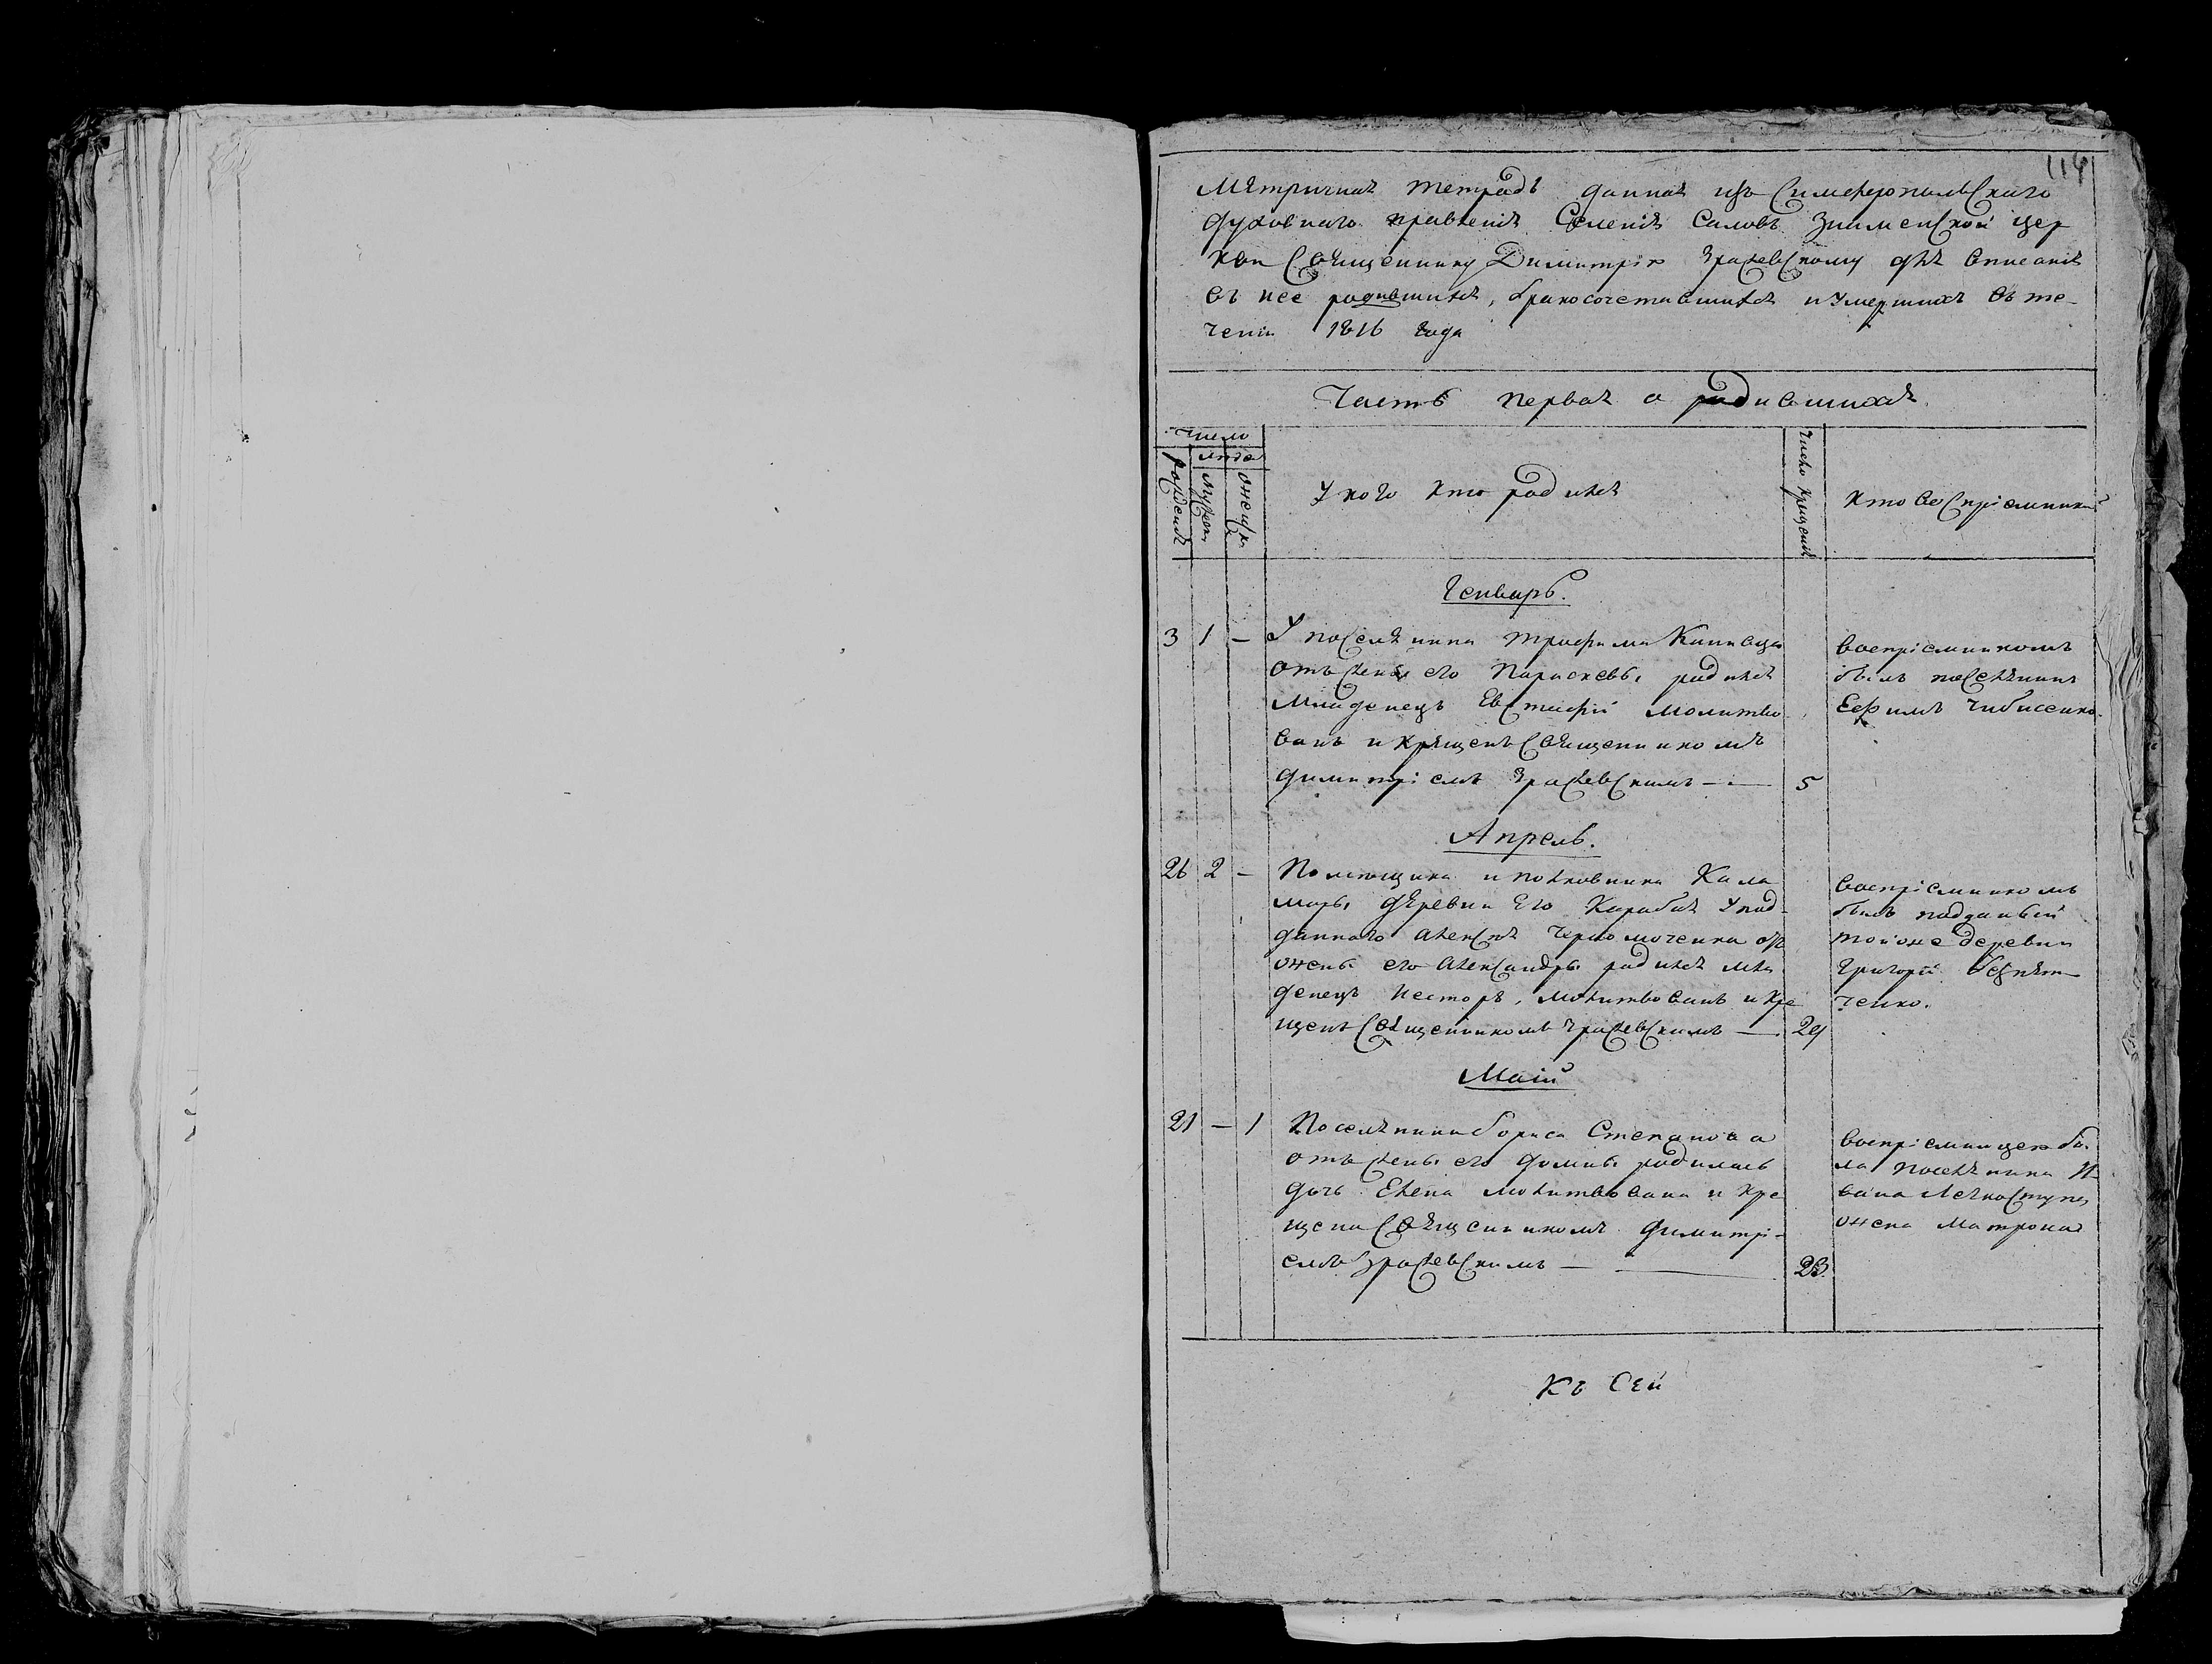 114
Метричная тетрадь данная изъ Симферопольскаго
духовнаго правленія Селенія Саловъ Знаменской цер
кви Священнику Димитрію Грабевскому для вписанія
въ нее родившихся, бракосочетавшихся и умершихъ въ те-
ченіи 1816 года
Часть первая о родившихся
число
рожденія
мужеска
женска
У кого кто родился
Число крещенія
кто воспріемники
Генварь.
3 1 — У поселянина Трофима
отъ жены его Параскевы родился
младенец Евстафій молитво
ванъ и крященъ Священникомъ
Димитріемъ — 5
воспріемникомъ
былъ поселянинъ
Ефимъ Чибисенко
Апрель.
26 2 — Помещика и полковника Кала
моры деревни Его Карабах у под-
даннаго Алексея отъ
жены его Александры родился мла
денецъ Несторъ, молитвованъ и кре
щенъ Священникомъ — 29
воспріемникомъ
былъ подданый
тойже деревни
Григорій
ченко.
Маій
21 — 1 Поселянина Бориса Степанова
отъ жены его Домны родилась
дочь Елена молитвована и кре
щена Священникомъ Димитрі-
емъ — 23
воспріемницею бы-
ла поселянина И-
вана
жена Матрона
Къ Сей